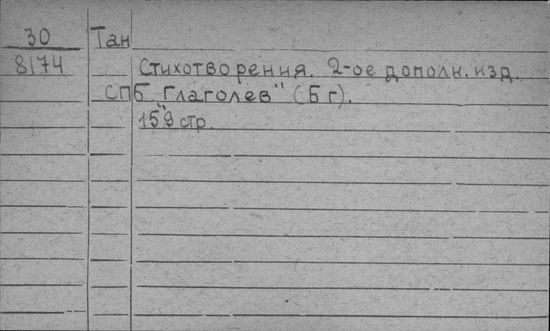 30 Тан
8174 Стихотворения. 2-ое дополн. изд.
СПБ "Глаголев" (Б г).
159 стр.